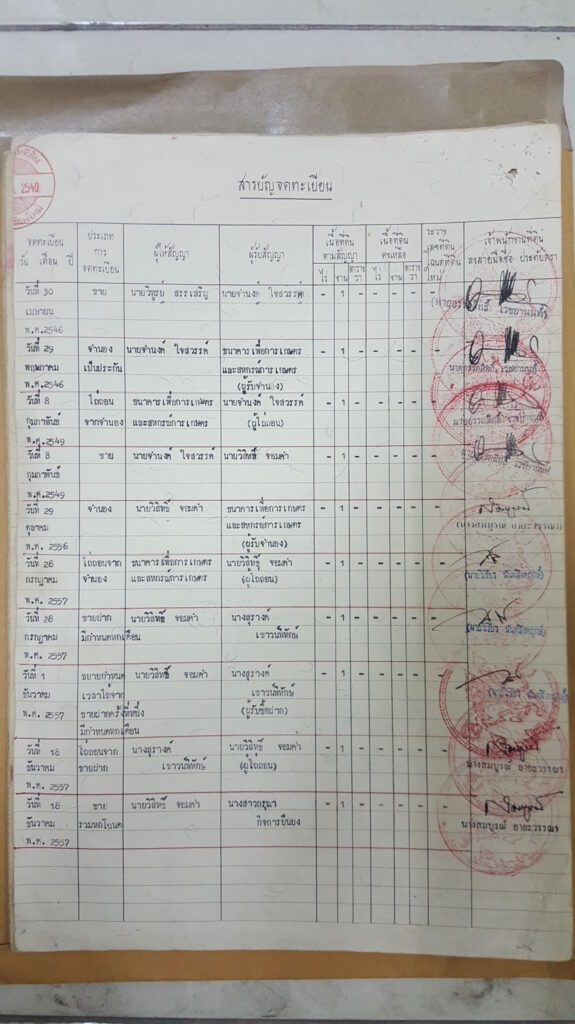 2540
สารบัญจดทะเบียน
จดทะเบียน วัน เดือน ปี
ประเภท การ จดทะเบียน
ผู้ให้สัญญา
ผู้รับสัญญา
เนื้อที่ดิน ตามสัญญา
ไร่ งาน ตาราง วา
เนื้อที่ดิน คงเหลือ
ไร่ งาน ตาราง วา
ระวาง เลขที่ดิน โฉนดที่ดิน ใหม่
เจ้าพนักงานที่ดิน ลงลายมือชื่อ ประทับตรา
วันที่ 30 ขาย นายวิฑูรย์ สรรเสริญ นายจำนงค์ ใจสวรรค์ - 1 - - - - -
เมษายน
พ.ศ.2546
วันที่ 29 จำนอง นายจำนงค์ ใจสวรรค์ ธนาคารเพื่อการเกษตร - 1 - - - - -
พฤษภาคม เป็นประกัน และสหกรณ์การเกษตร
พ.ศ.2546 (ผู้รับจำนอง)
วันที่ 8 ไถ่ถอน ธนาคารเพื่อการเกษตร นายจำนงค์ ใจสวรรค์ - 1 - - - - -
กุมภาพันธ์ จากจำนอง และสหกรณ์การเกษตร (ผู้ไถ่ถอน)
พ.ศ.2549
วันที่ 8 ขาย นายจำนงค์ ใจสวรรค์ นายวิสิทธิ์ จอมคำ - 1 - - - - -
กุมภาพันธ์
พ.ศ.2549
วันที่ 29 จำนอง นายวิสิทธิ์ จอมคำ ธนาคารเพื่อการเกษตร - 1 - - - - -
ตุลาคม และสหกรณ์การเกษตร (นางสมบูรณ์ อายะวรรณา)
พ.ศ. 2556 (ผู้รับจำนอง)
วันที่ 28 ไถ่ถอนจาก ธนาคารเพื่อการเกษตร นายวิสิทธิ์ จอมคำ - 1 - - - - -
กรกฎาคม จำนอง และสหกรณ์การเกษตร (ผู้ไถ่ถอน)
พ.ศ. 2557
วันที่ 28 ขายฝาก นายวิสิทธิ์ จอมคำ นางสุรางค์ - 1 - - - - -
กรกฎาคม มีกำหนดหกเดือน เชาวนพิทักษ์
พ.ศ. 2557
วันที่ 1 ขยายกำหนด นายวิสิทธิ์ จอมคำ นางสุรางค์ - 1 - - - - -
ธันวาคม เวลาไถ่จาก เชาวนพิทักษ์
พ.ศ. 2557 ขายฝากครั้งที่หนึ่ง (ผู้รับซื้อฝาก)
มีกำหนดหกเดือน
วันที่ 18 ไถ่ถอนจาก นางสุรางค์ นายวิสิทธิ์ จอมคำ - 1 - - - - -
ธันวาคม ขายฝาก เชาวนพิทักษ์ (ผู้ไถ่ถอน) นางสมบูรณ์ อายะวรรณา
พ.ศ. 2557
วันที่ 18 ขาย นายวิสิทธิ์ จอมคำ นางสาวกรุณา - 1 - - - - -
ธันวาคม รวมหกโฉนด กิจการยืนยง นางสมบูรณ์ อายะวรรณา
พ.ศ. 2557